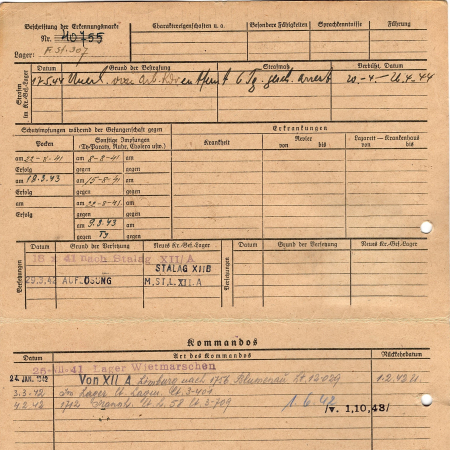 Beschriftung der Erkennungsmarke
Nr. 40755
Lager: F St. 307
Charaktereigenschaften u. a.
Besondere Fähigkeiten
Sprachkenntnisse
Führung
Strafen im Kr.-Gef.-Lager
Datum
Grund der Bestrafung
Strafmaß
Verbüßt, Datum
17.5.44 Unerl. vom Arb. Kdo entfernt 6 Tg. gesch. Arrest 20-4-26.4.44
Schutzimpfungen während der Gefangenschaft gegen
Erkrankungen
Pocken
Sonstige Impfungen
(Ty-Paraty, Ruhr, Cholera usw.)
Krankheit
Revier
von bis
Lazarett — Krankenhaus
von bis
am 22-X-41 am 8-8-41
Erfolg gegen gegen
am 18.3.43 am 15-8-41
Erfolg gegen gegen
am am 22-8-41
Erfolg gegen gegen
am am 9.3.43
Erfolg gegen Ty gegen
Versetzungen
Datum
Grund der Versetzung
Neues Kr.-Gef.-Lager
Datum
Grund der Versetzung
Neues Kr.-Gef.-Lager
18 X 41 nach Stalag XII/A
STALAG XII B
29.3.42 AUFLÖSUNG M.ST.L.XII.A
Kommandos
Datum
Art des Kommandos
Rückkehrdatum
26-VII-41 Lager Wietmarschen
24. JAN. 1942 Von XII A Limburg nach 1756 Blumenau 1.2.42
3.3.42 Lager
4.2.42 1712
1.6.42
/v. 1,10,43/